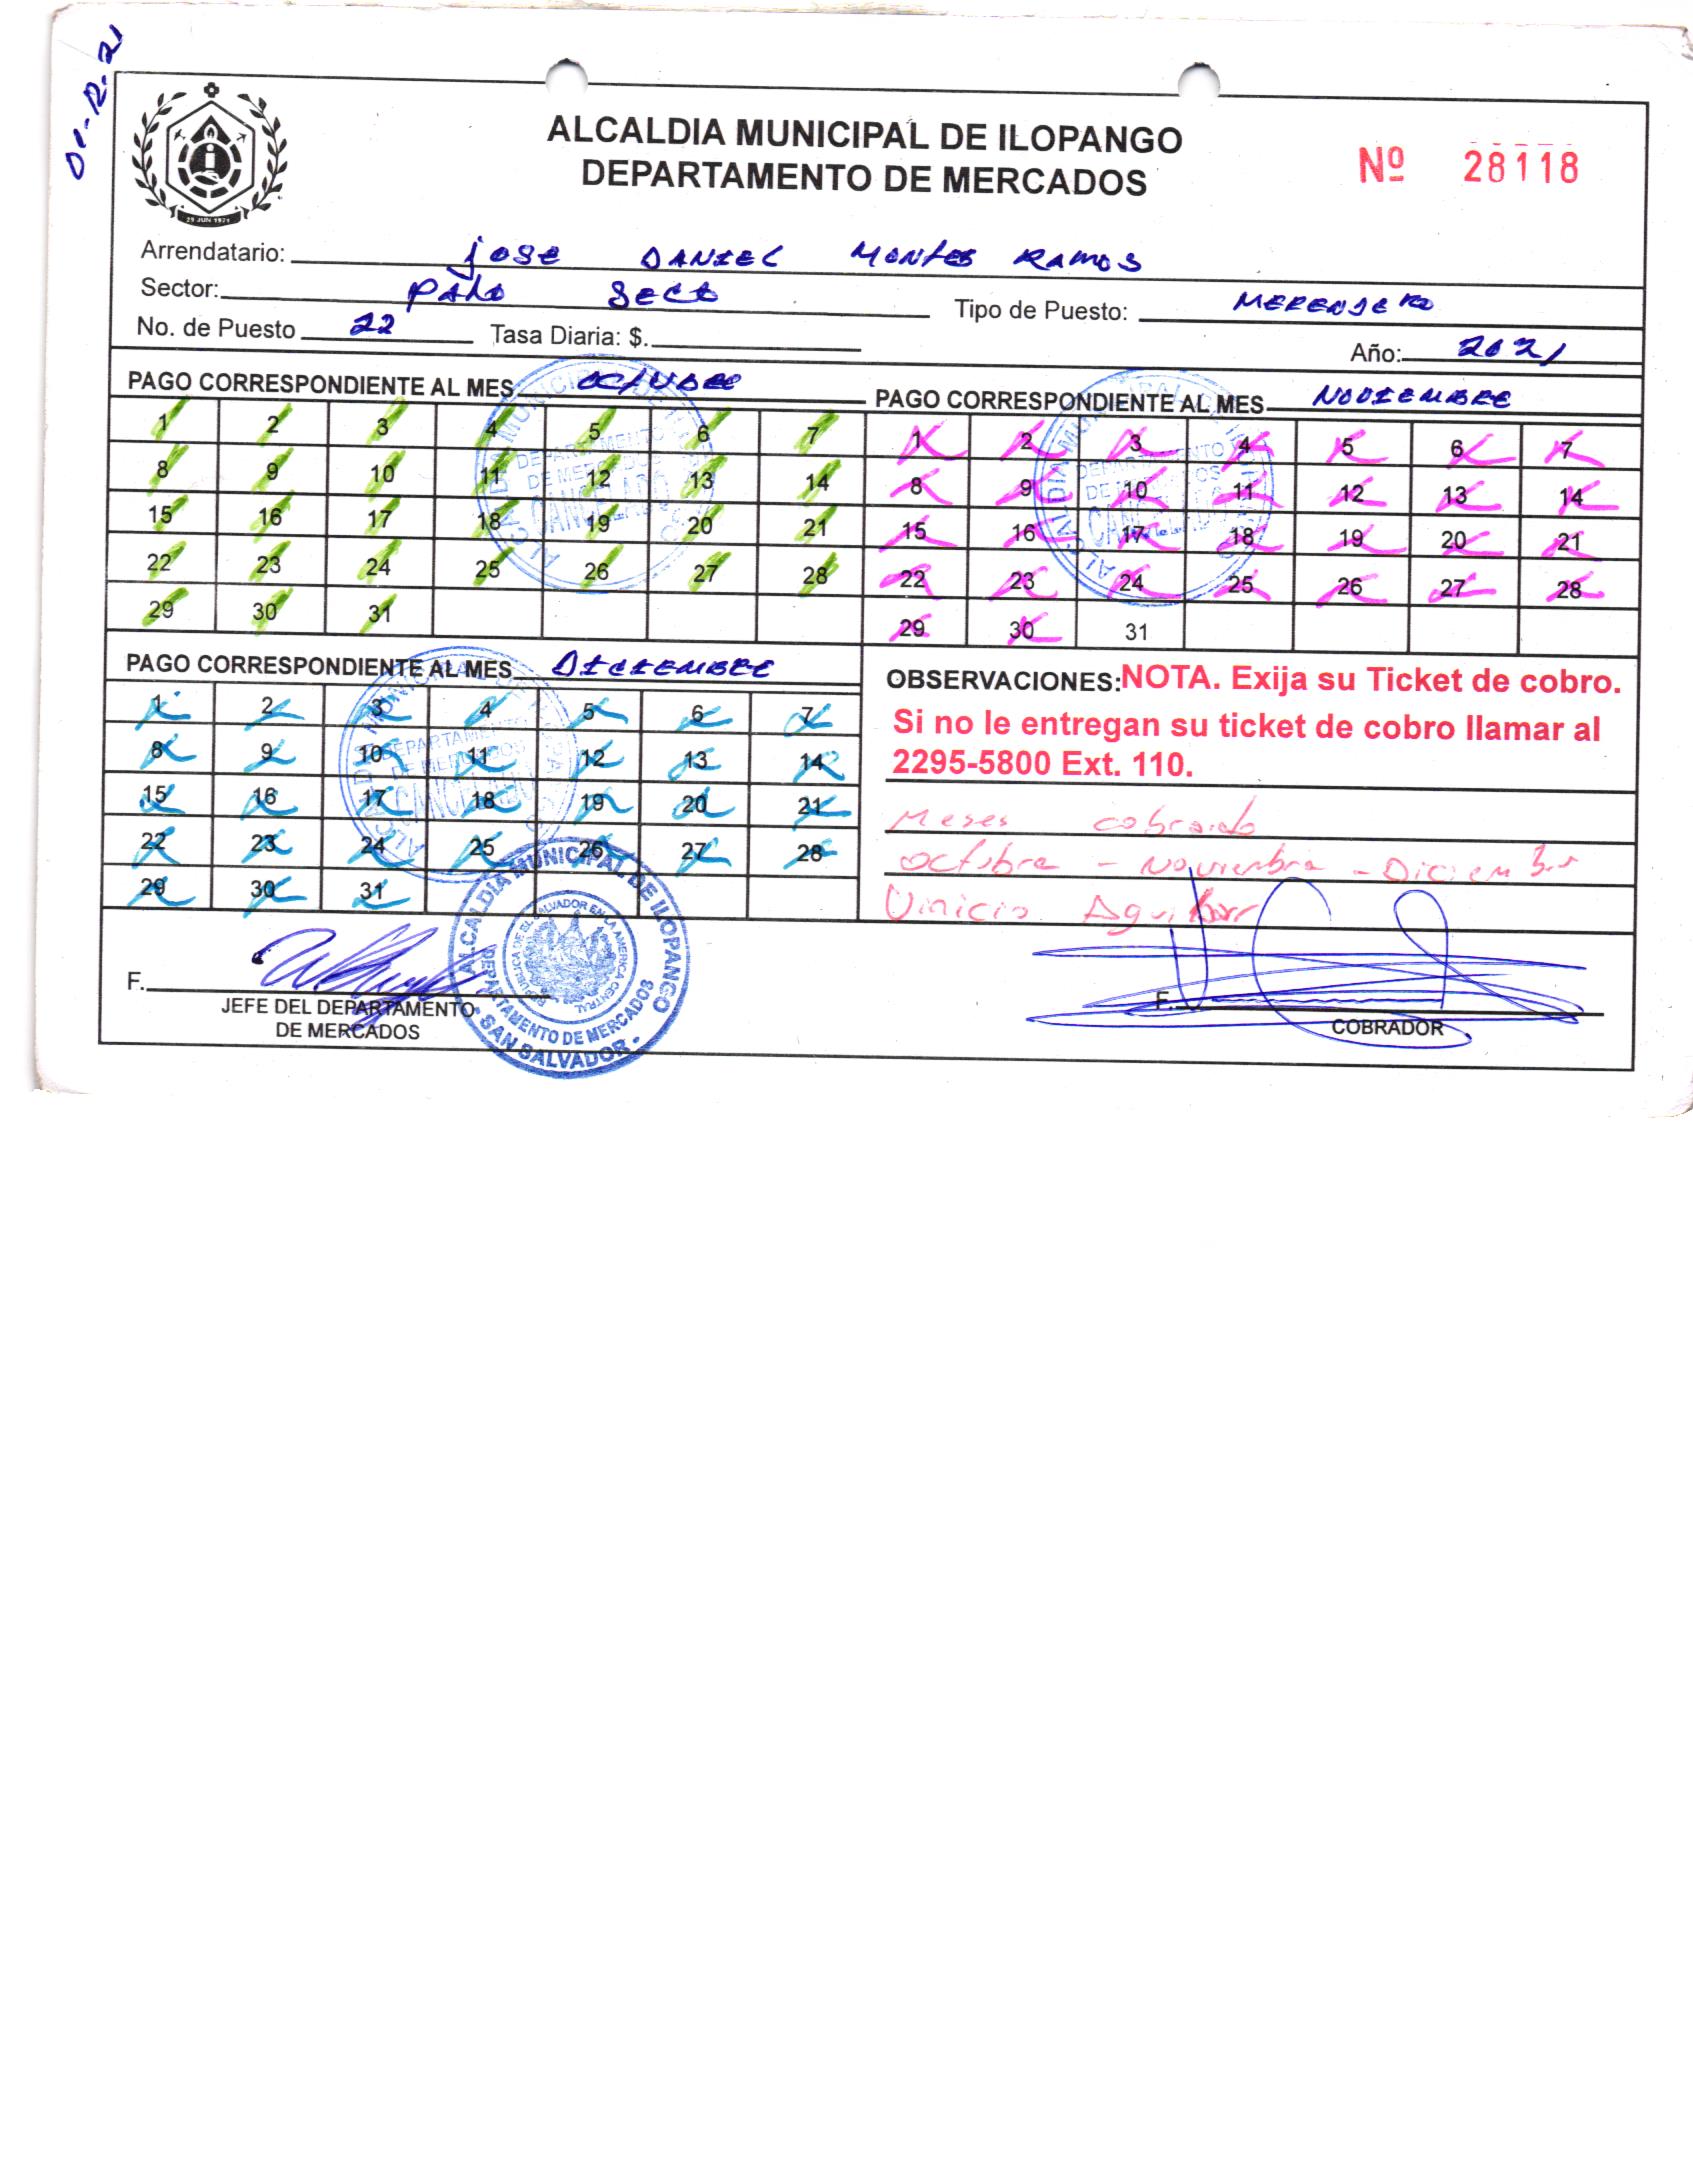 01-12-21
ALCALDIA MUNICIPAL DE ILOPANGO
DEPARTAMENTO DE MERCADOS
Nº 28118
29 JUN 1971
Arrendatario: jose DANIEL MONTES RAMOS
Sector: PALO SECO
Tipo de Puesto: MERENDERO
No. de Puesto 22 Tasa Diaria: $.
Año: 2021
PAGO CORRESPONDIENTE AL MES OCTUBRE
1 2 3 4 5 6 7
8 9 10 11 12 13 14
15 16 17 18 19 20 21
22 23 24 25 26 27 28
29 30 31
PAGO CORRESPONDIENTE AL MES NOVIEMBRE
1 2 3 4 5 6 7
8 9 10 11 12 13 14
15 16 17 18 19 20 21
22 23 24 25 26 27 28
29 30 31
PAGO CORRESPONDIENTE AL MES DICIEMBRE
1 2 3 4 5 6 7
8 9 10 11 12 13 14
15 16 17 18 19 20 21
22 23 24 25 26 27 28
29 30 31
OBSERVACIONES: NOTA. Exija su Ticket de cobro.
Si no le entregan su ticket de cobro llamar al
2295-5800 Ext. 110.
Meses cobrado
octubre - Noviembre -
Vinicio
F.
JEFE DEL DEPARTAMENTO
DE MERCADOS
ALCALDIA MUNICIPAL DE ILOPANGO
DEPARTAMENTO DE MERCADOS
SAN SALVADOR
F.
COBRADOR